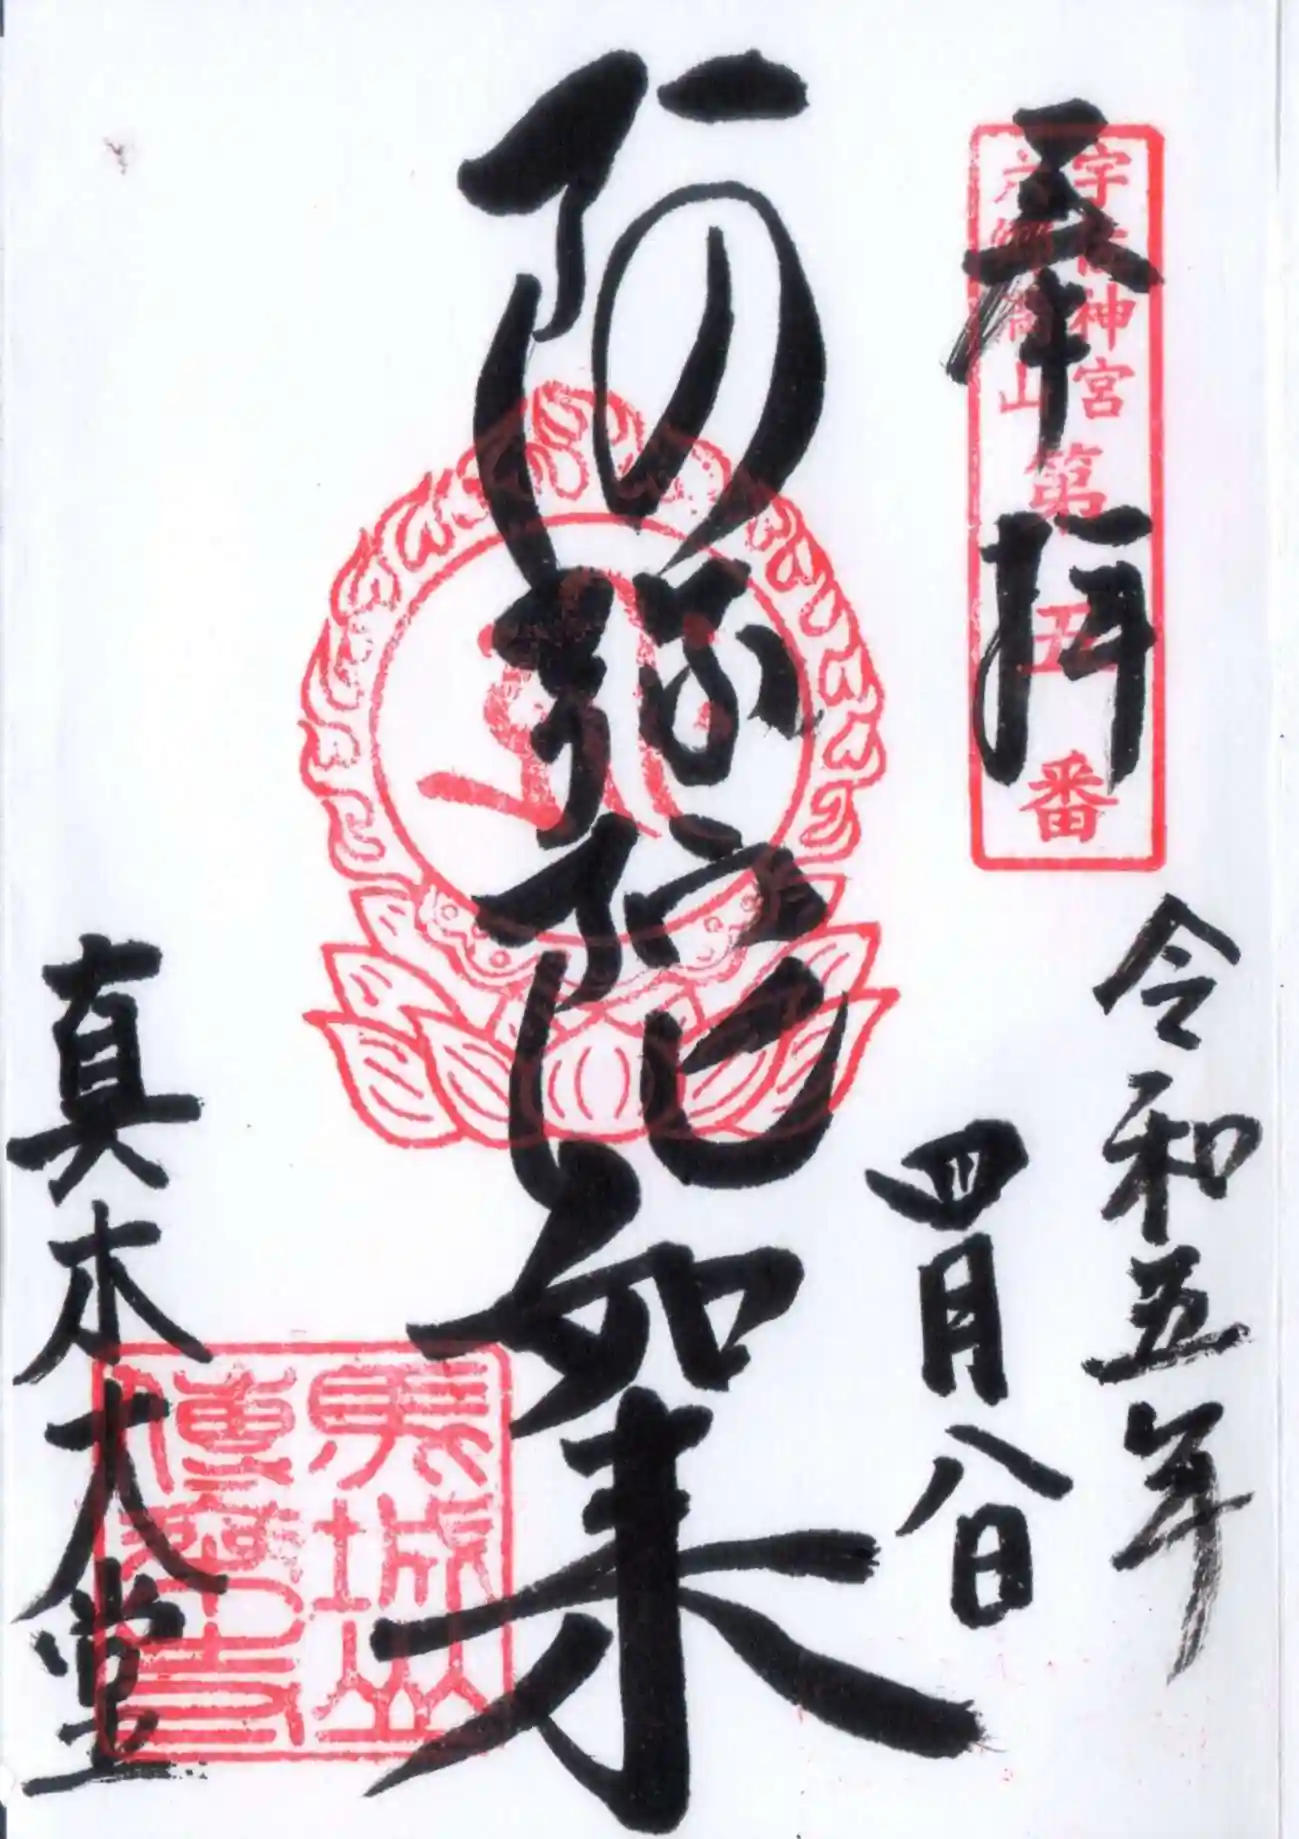 奉拝
宇佐神宮
六郷満山
第五番
令和五年
四月八日
阿弥陀如来
真木大堂
馬城山
傳乗寺